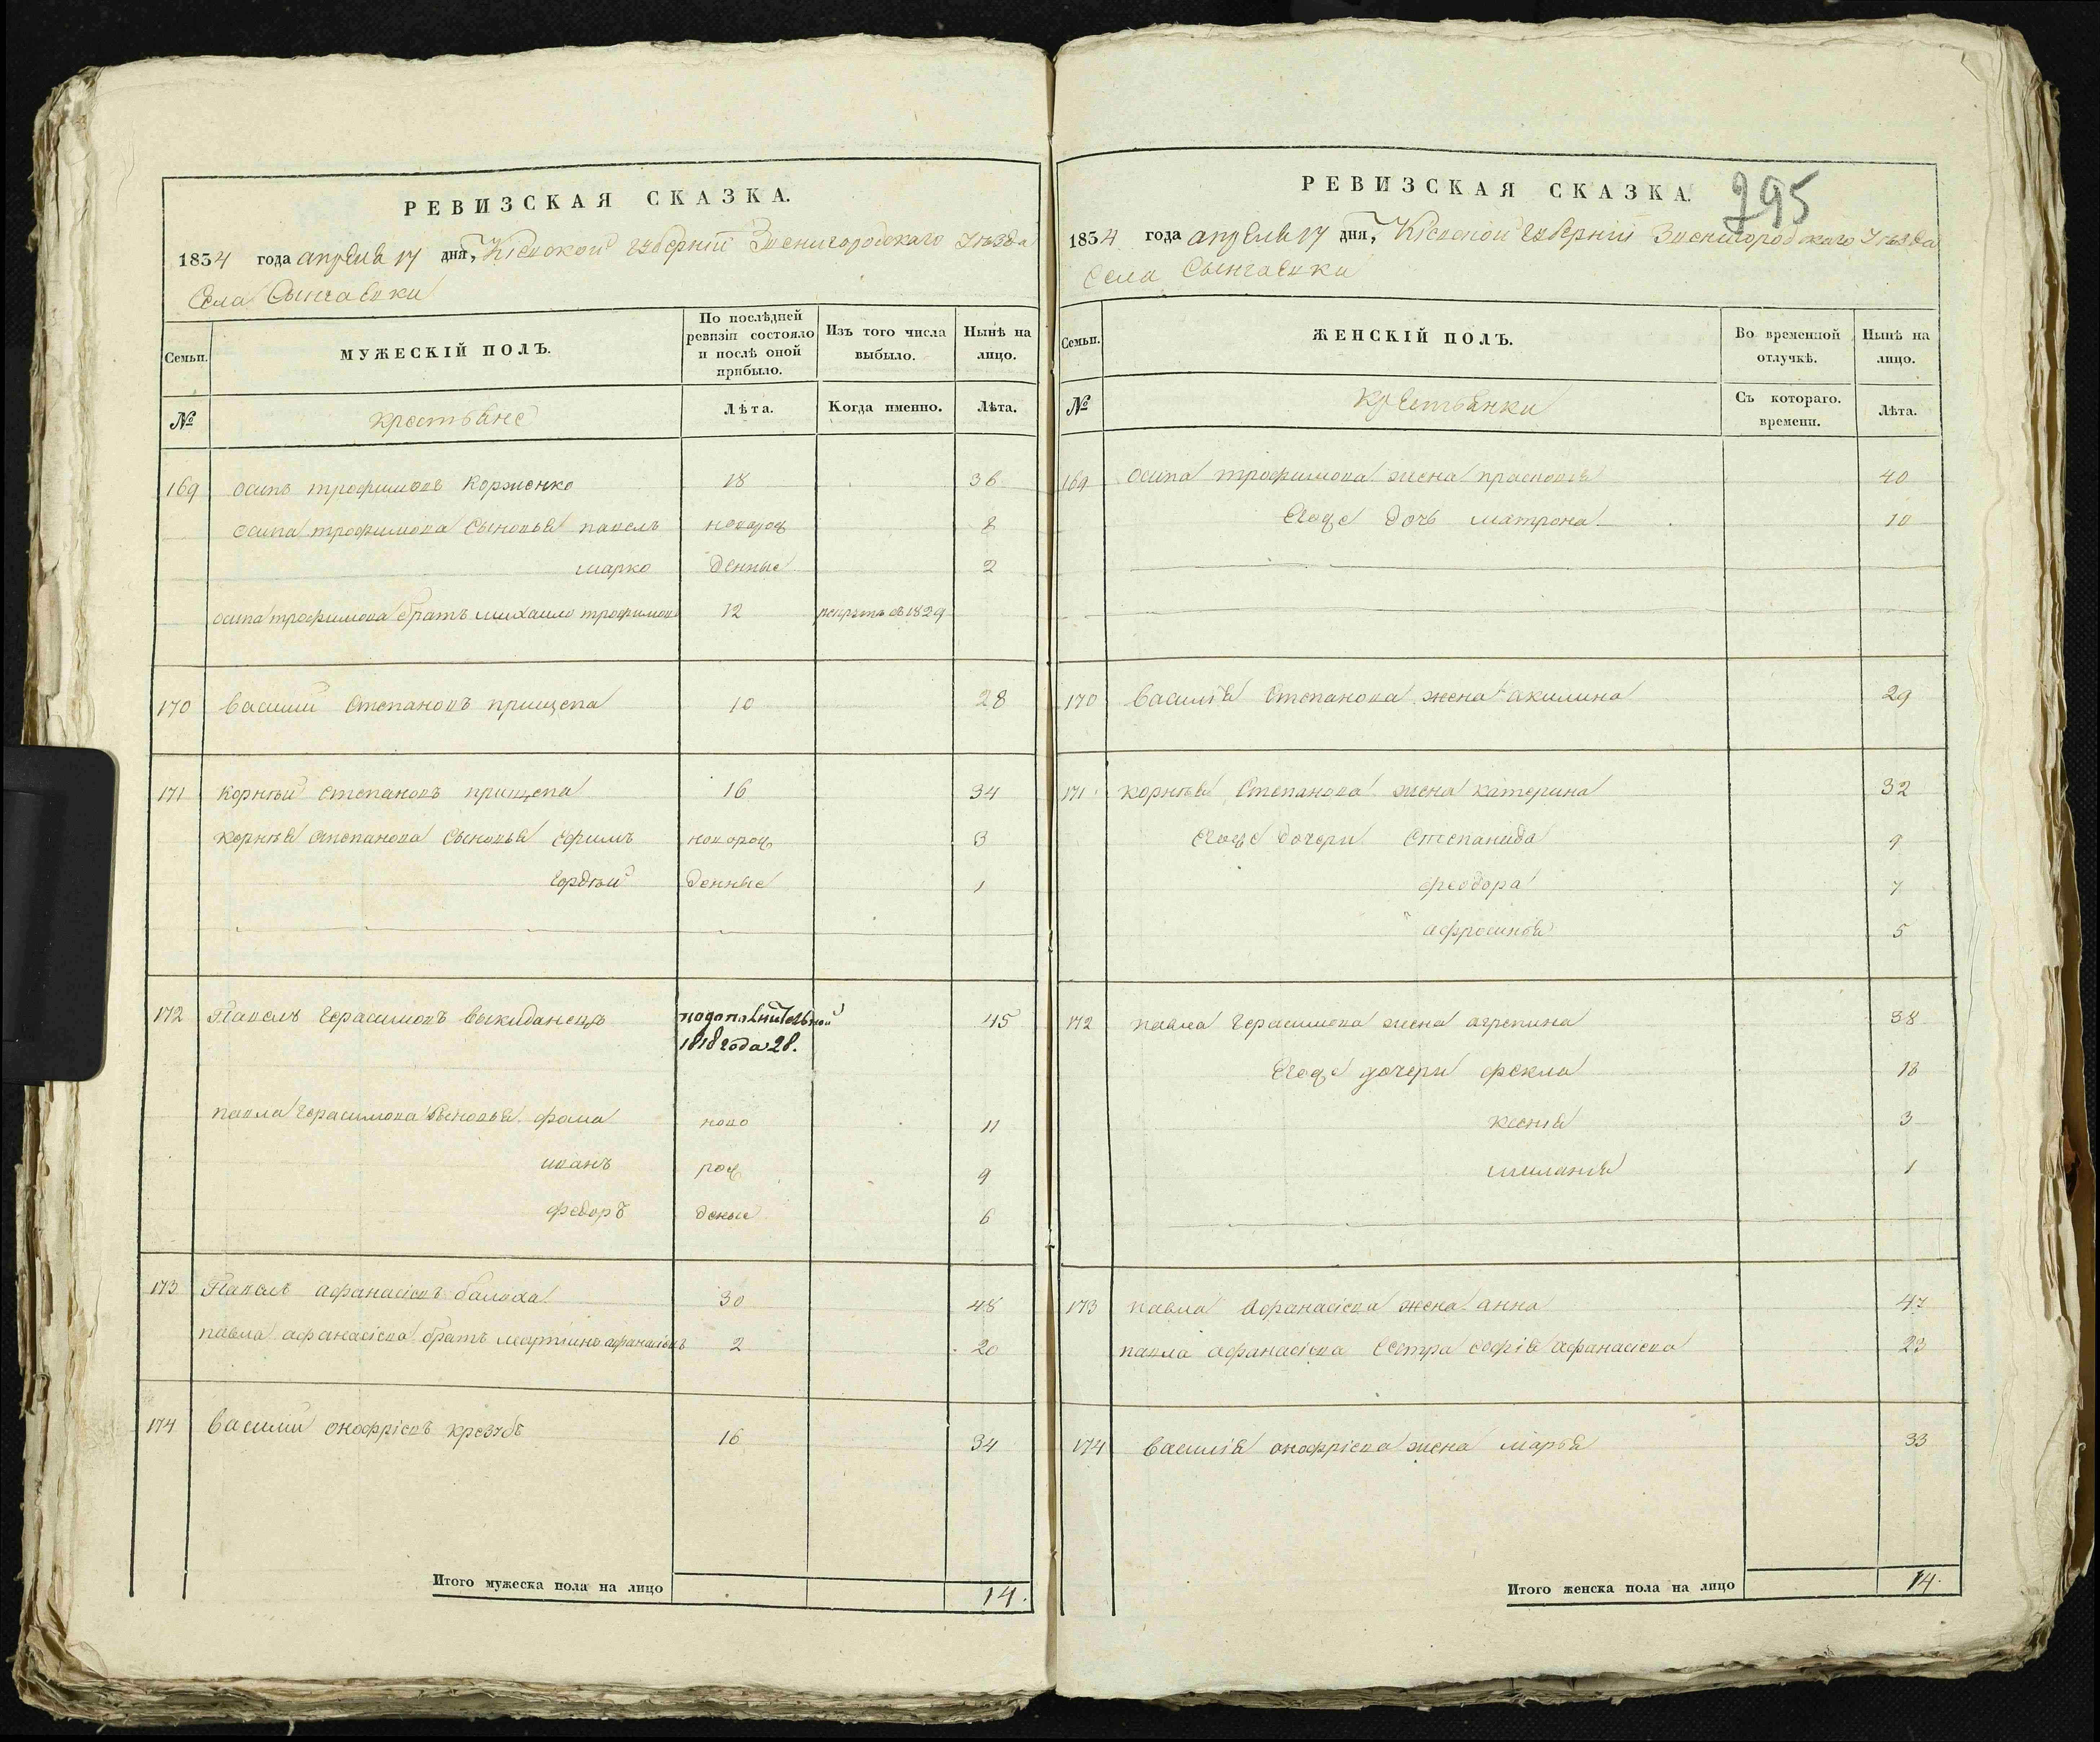 РЕВИЗСКАЯ СКАЗКА.
1834 года апреля 17 дня, Кіевской губерніи Звенигородскаго Уѣзда
Села
Семьи.
МУЖЕСКІЙ ПОЛЪ.
По послѣдней ревизіи состояло и послѣ оной прибыло.
Изъ того числа выбыло.
Нынѣ на лицо.
№
крестьяне
Лѣта.
Когда именно.
Лѣта.
169 осипъ трофимовъ Корженко 18 36
осипа трофимова сыновья павелъ новорож 8
марко денные 2
осипа трофимова братъ михаило трофимовъ 12 1829
170 василий степановъ прищепа 10 28
171 корнѣй степановъ прищепа 16 34
корнѣя степанова сыновья ефимъ новорож 3
гордѣй денные 1
172 Павелъ герасимовъ выкиданецъ подополнительной 45
1818 года 28.
павла герасимова сыновья фома ново 11
иванъ рож 9
федоръ деные 6
173 Павелъ афанасіевъ балоха 30 48
павла афанасіева братъ мартинъ афанасіевъ 2 20
174 василий онофріевъ 16 34
Итого мужеска пола на лицо 14.
РЕВИЗСКАЯ СКАЗКА.
295
1834 года апреля 17 дня, Кіевской губерніи Звенигородскаго Уѣзда
Села
Семьи.
ЖЕНСКІЙ ПОЛЪ.
Во временной отлучкѣ.
Нынѣ на лицо.
№
крестьянки
Съ котораго. времени.
Лѣта.
169 осипа трофимова жена прасковя 40
Егоже дочь матрона 10
170 василія степанова жена акилина 29
171 корнѣя степанова жена катерина 32
Егоже дочери степанида 9
феодора 7
афросинія 5
172 павла герасимова жена агрепина 38
Егоже дочери фекла 18
ксенія 3
миланія 1
173 павла афанасіева жена анна 47
павла афанасіева сестра софія афанасіева 23
174 василія онофріева жена марья 33
Итого женска пола на лицо 14.